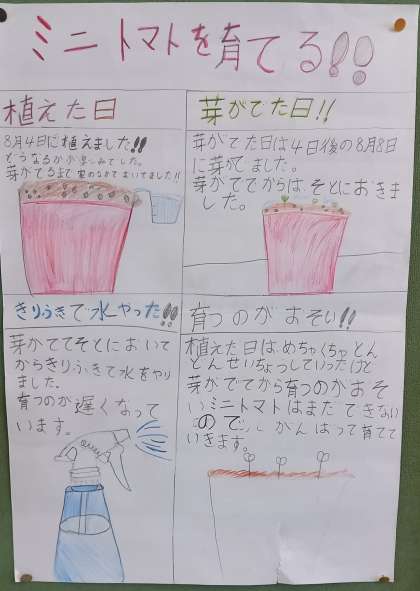 ミニトマトを育てる!!
植えた日
8月4日に植えました!!
どうなるかが楽しみでした。
芽がでるまで家のなかでおいてました!!
芽がでた日!!
芽がでた日は4日後の8月8日
に芽がでました。
芽がででからは、そとにおきま
した。
きりふきで水やった!!
芽がででそとにおいて
からきりふきで水をやり
ました。
育つのが遅くなって
います。
育つのがおそい!!
植えた日は、めちゃくちゃとん
とんせいちょっしていったけど
芽がでてから育つのがおそ
いミニトマトはまだできない
ので、かんばって育てて
いきます。